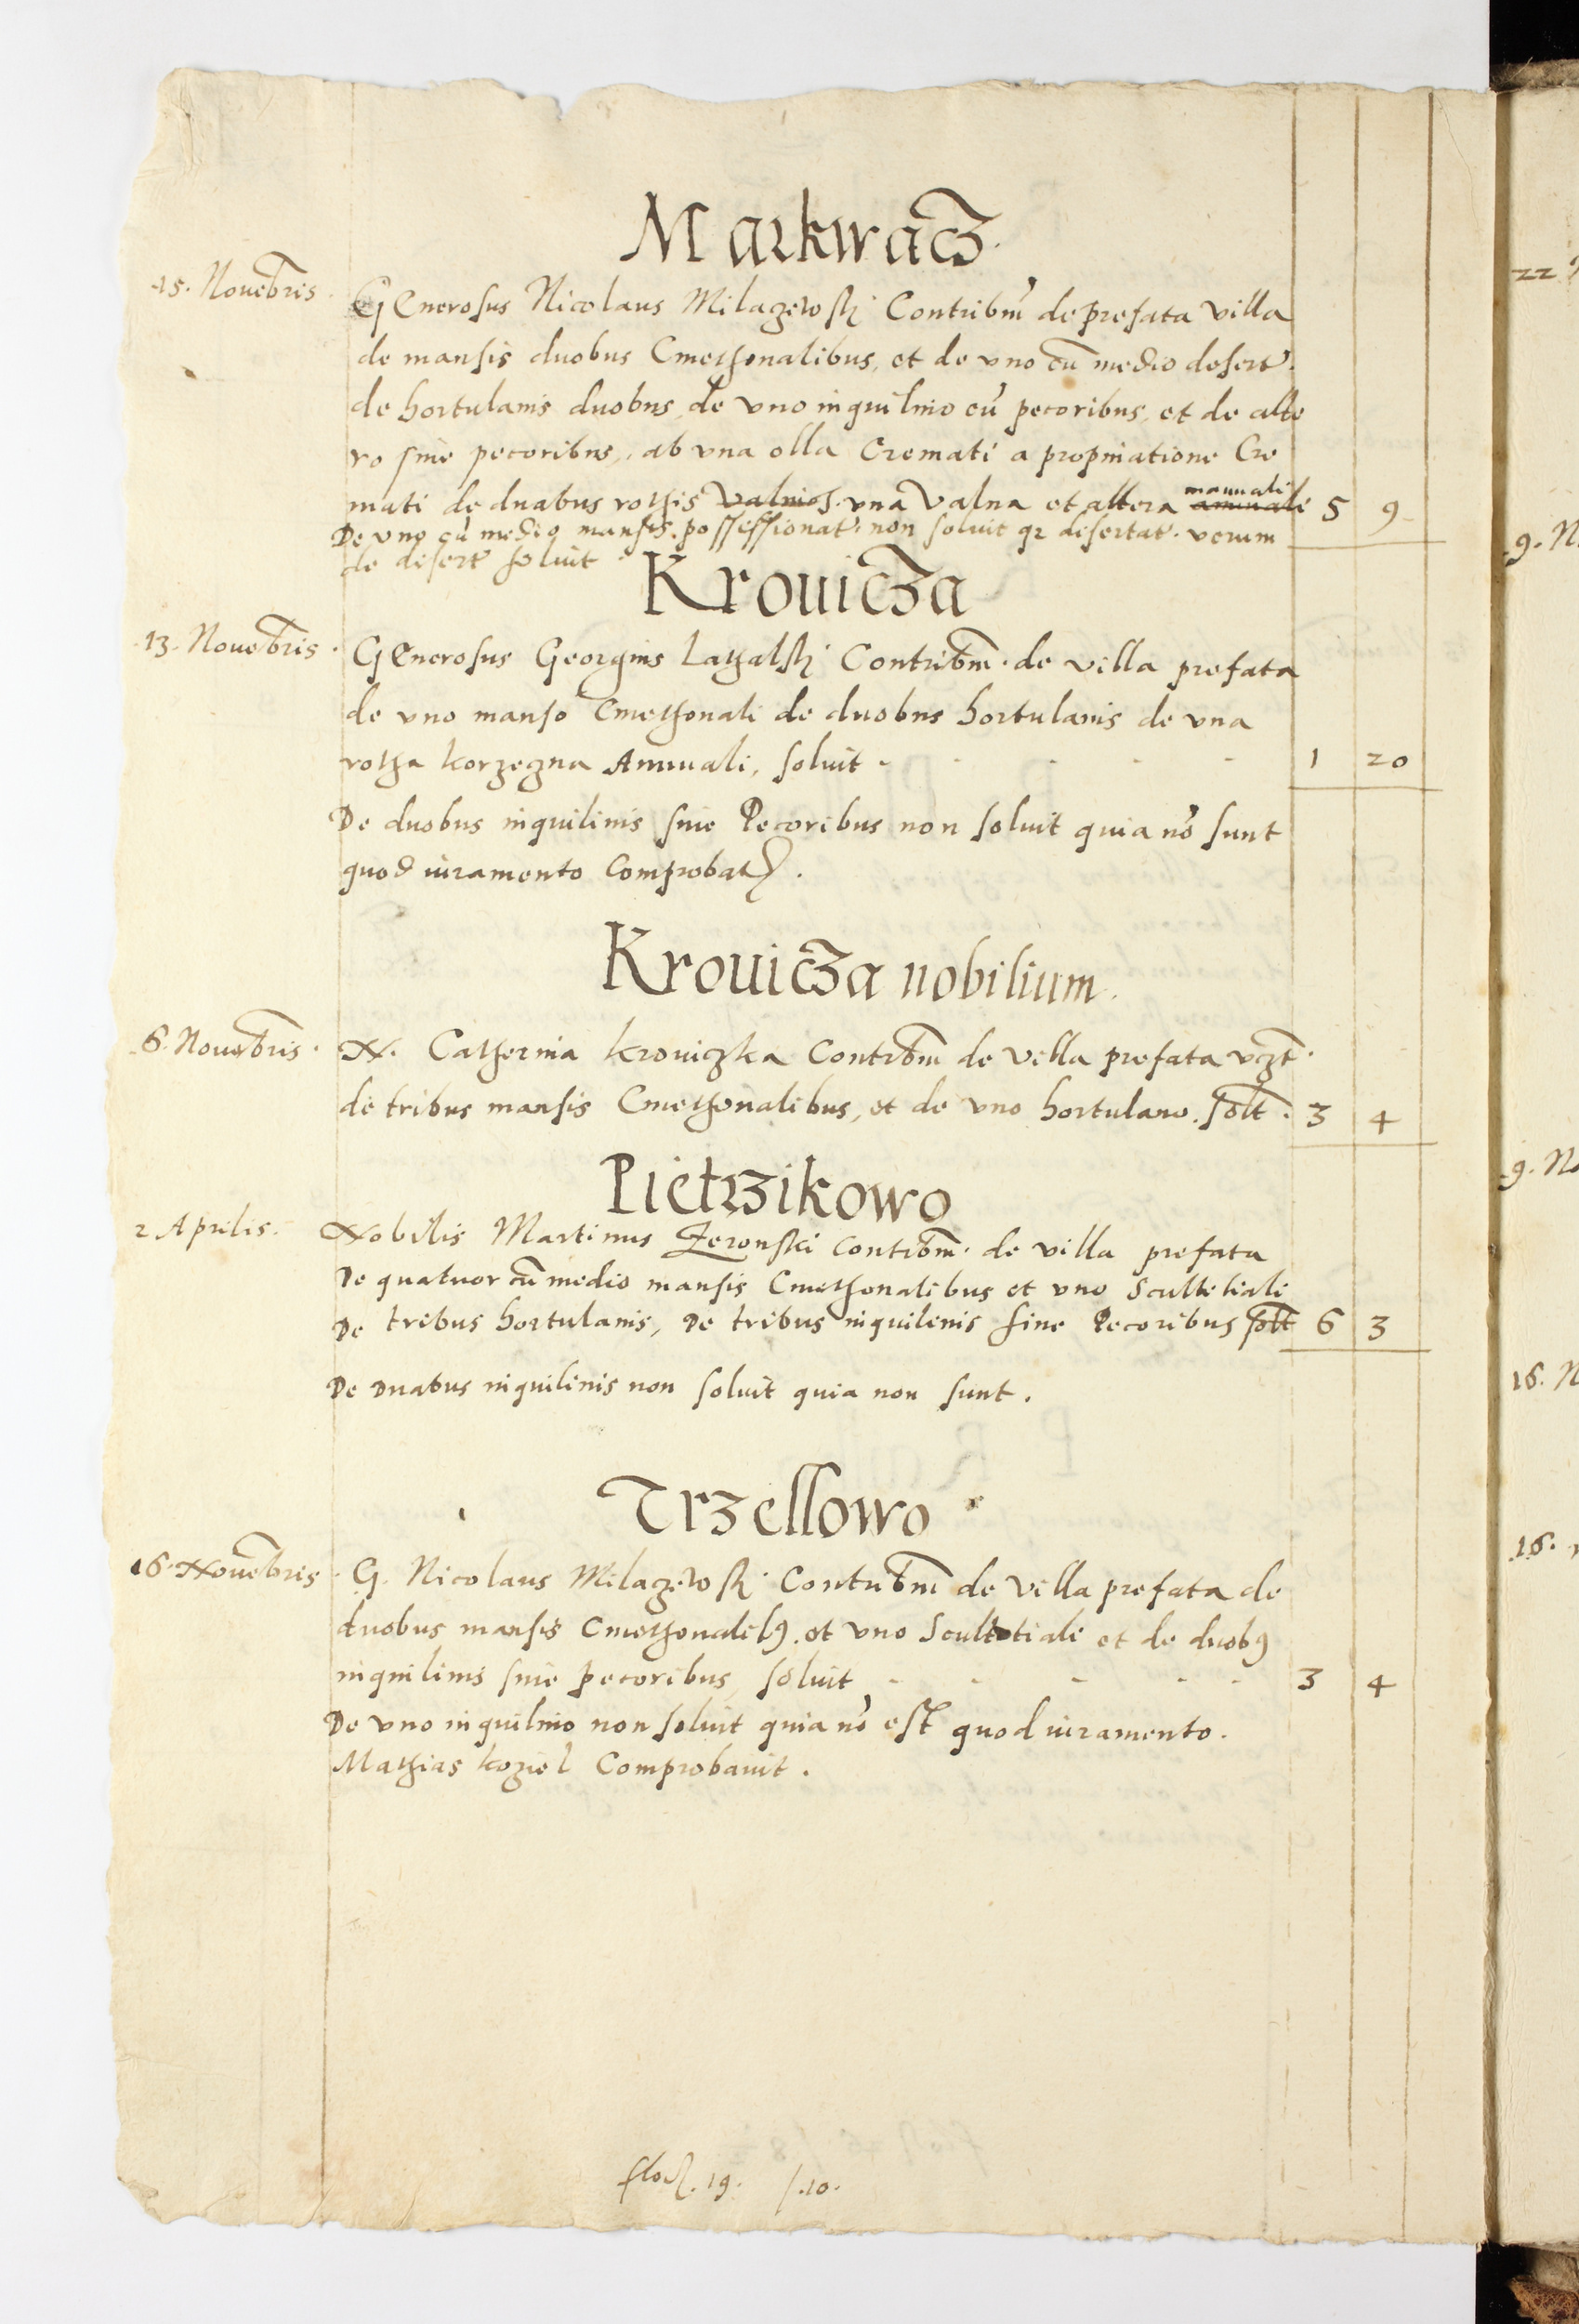 Markwacz.
15. Nouebris.
GEnerosus Nicolaus Milaczewskj Contribm de prefata villa
de mansis duobus Cmethonalibus, et de vno cu medio desert.
de hortulanis duobus de vno inquilino cu pecoribus, et de alte
ro sine pecoribus, ab vna olla Cremati a propinatione Cre
mati de duabus rothis valnios. vna Valna et altera annuali manuali 5 9
De vno cu medio mansis possessionat. non soluit qr desertat. verum
de desert soluit
Krouicza
13. Nouebris.
GEnerosus Georgius Lathalskj Contribm. de villa prefata
de vno manso Cmethonali de duobus hortulanis de vna
rotha korzeczna Annuali, soluit . . . . . 1 20
De duobus inquilinis sine Pecoribus non soluit quia no sunt
quod iuramento Comprobat.
Krouicza nobilium.
6. Nouebris.
N. Catherina krouiczka Contrbm de villa prefata vczt.
de tribus mansis Cmethonalibus, et de vno hortulano. solt. 3 4
Pietrzikowo
2 Aprilis.
Nobilis Martinus Zeronski contrbm. de villa prefata
De quatuor cu medio mansis Cmethonalibus et vno Scultetiali
De tribus hortulanis, De tribus inquilinis sine Pecoribus solt 6 3
De duabus inquilinis non soluit quia non sunt.
Trzellowo
16. Nouebris.
G. Nicolaus Milaczewskj Contribm de villa prefata de
duobus mansis Cmethonalib9. et vno Scultetiali et de duob9
inquilinis sine pecoribus, soluit . . . . . 3 4
De vno inquilino non soluit quia no est quod iuramento.
Mathias koziel Comprobauit.
flor. 19. /.10.
22
9. N
9. No
16. N
16.